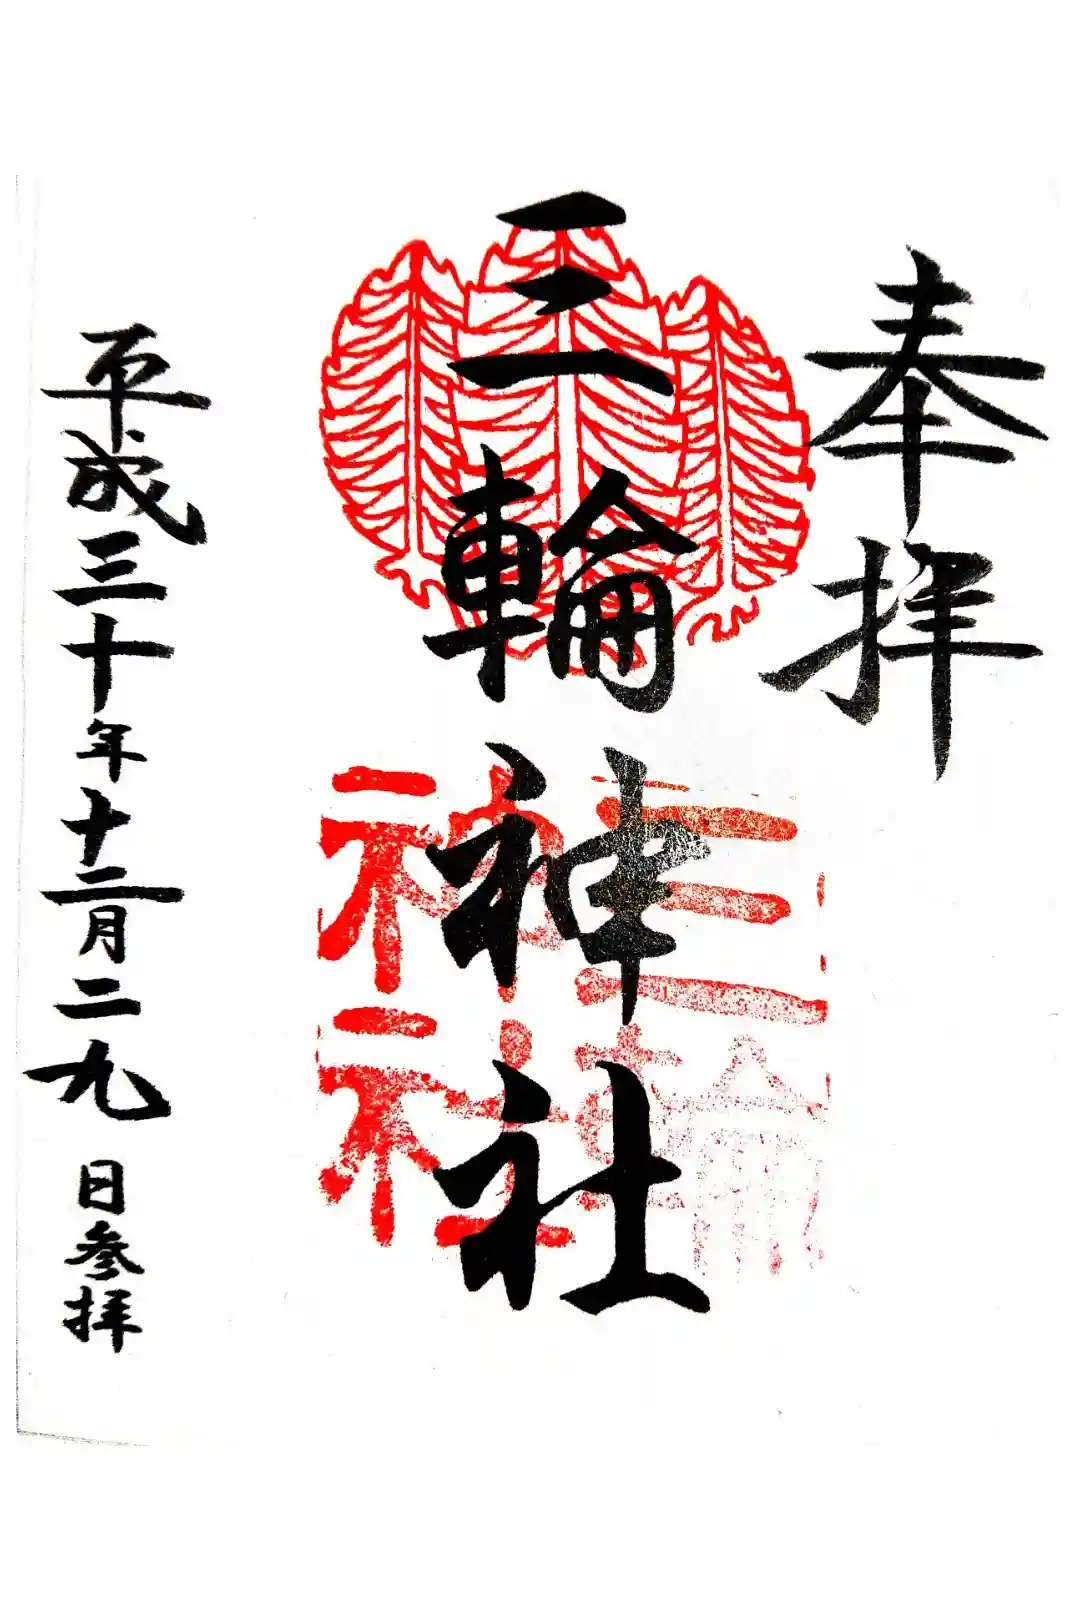 奉拝
三輪神社
三輪
神社
平成三十年十二月二九日参拝